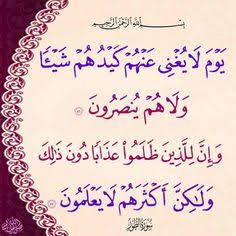 بِسْمِ اللَّهِ الرَّحْمَٰنِ الرَّحِيمِ
يَوْمَ لَا يُغْنِى عَنْهُمْ كَيْدُهُمْ شَيْـًٔا
وَلَا هُمْ يُنصَرُونَ ٤٦
وَإِنَّ لِلَّذِينَ ظَلَمُوا۟ عَذَابًا دُونَ ذَٰلِكَ
وَلَٰكِنَّ أَكْثَرَهُمْ لَا يَعْلَمُونَ ٤٧
سورة الطور